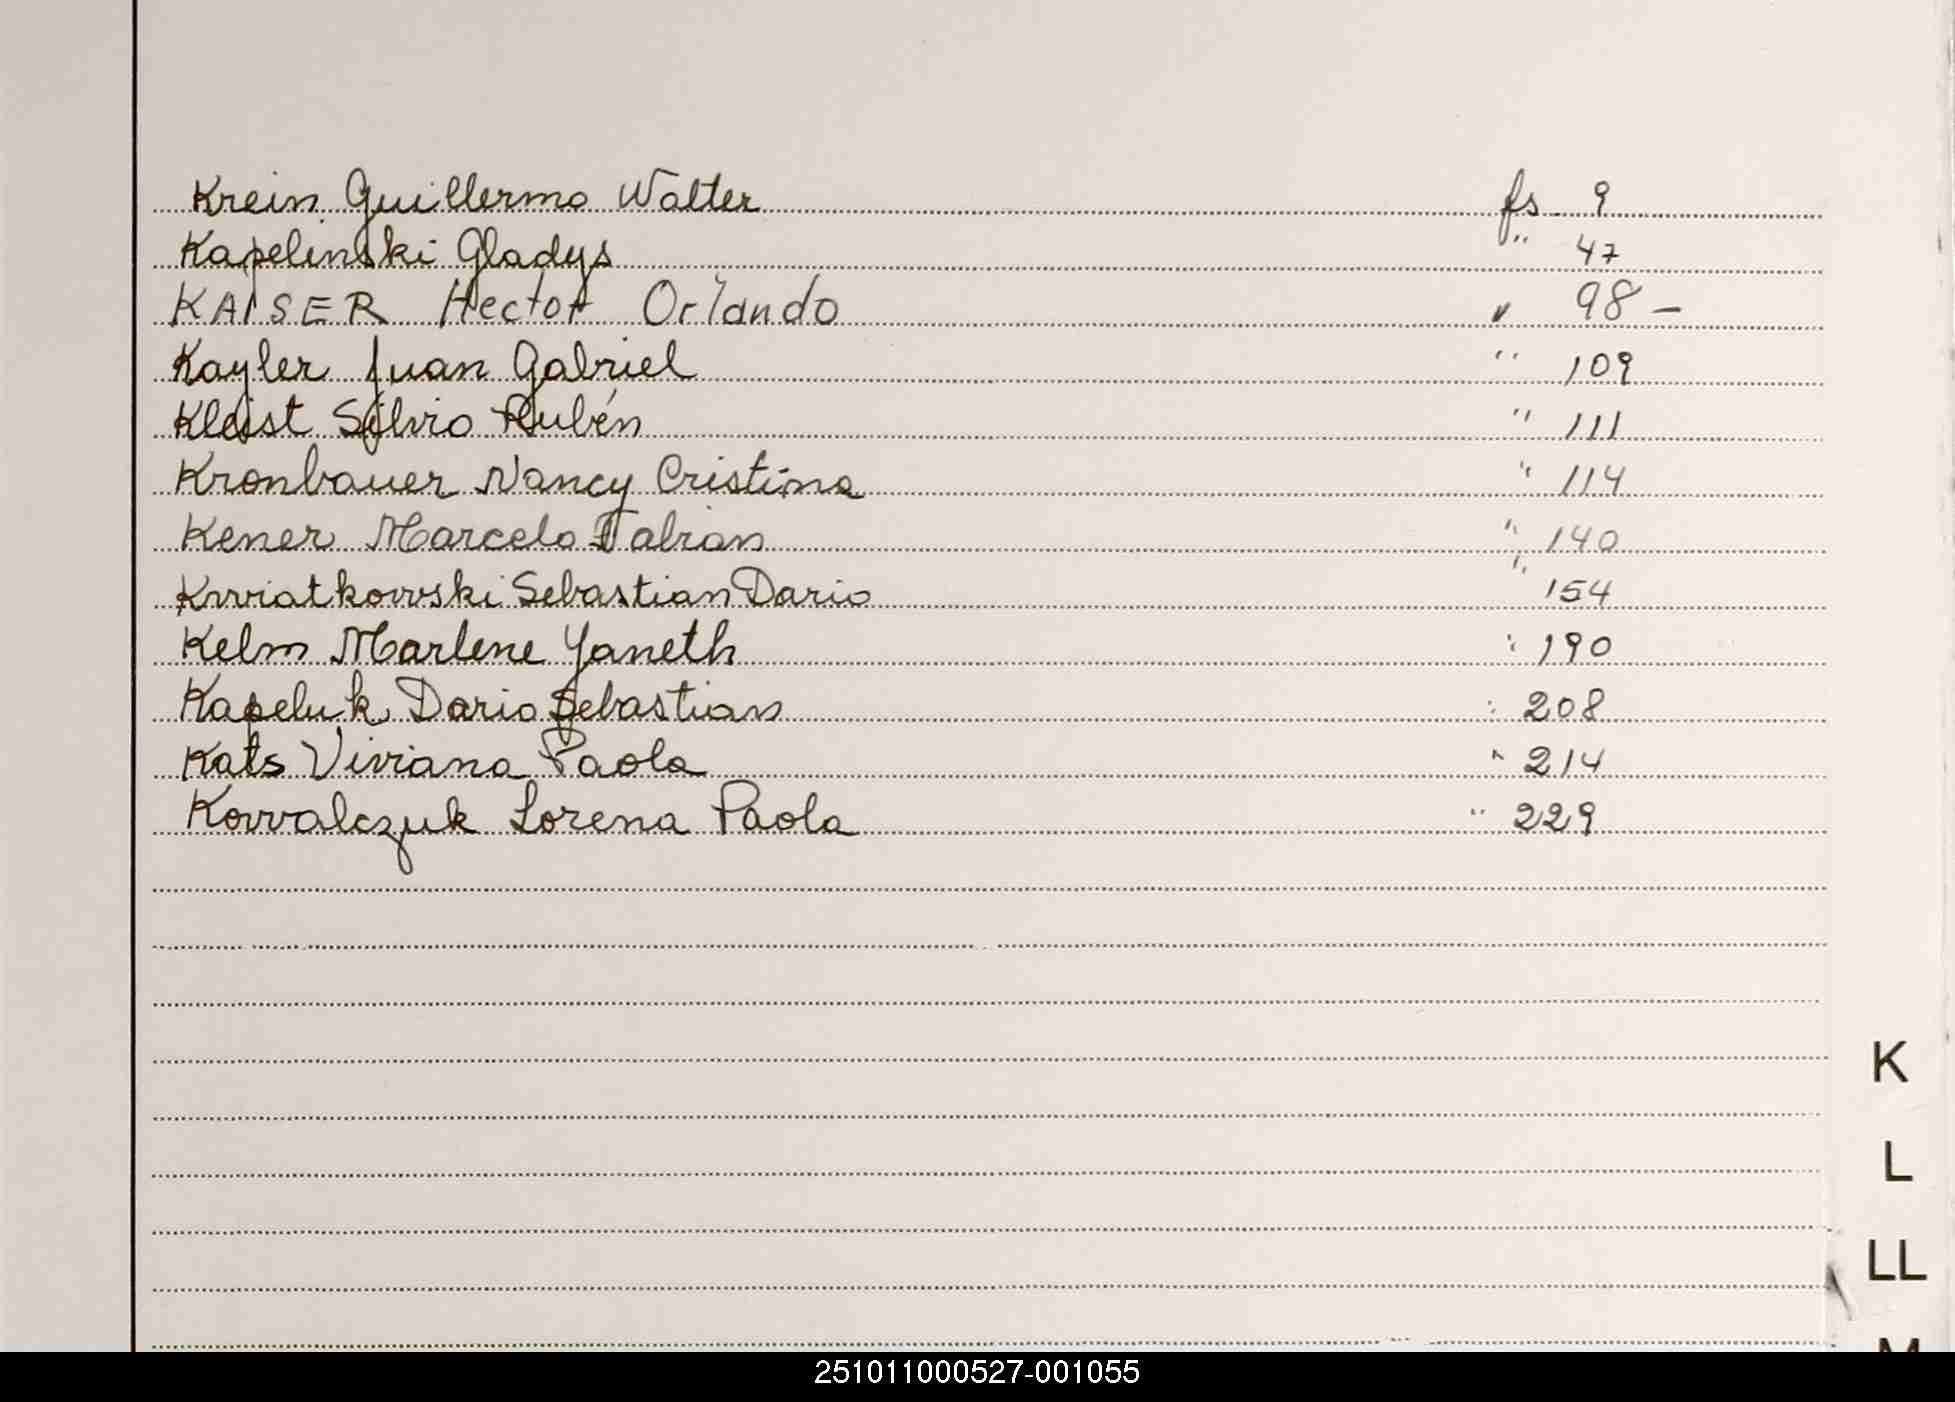 Krein Guillermo Walter fs 9
Kapelinski Gladys " 47
KAISER Hector Orlando " 98 -
Kayler Juan Gabriel " 109
Kleist Silvio Rubén " 111
Kronbauer Nancy Cristina " 114
Kener Marcelo Fabian " 140
Kwiatkowski Sebastian Dario " 154
Kelm Marlene Yaneth " 190
Kapeluk Dario Sebastian " 208
Kats Viviana Paola " 214
Kowalczuk Lorena Paola " 229
K
L
LL
M
251011000527-001055